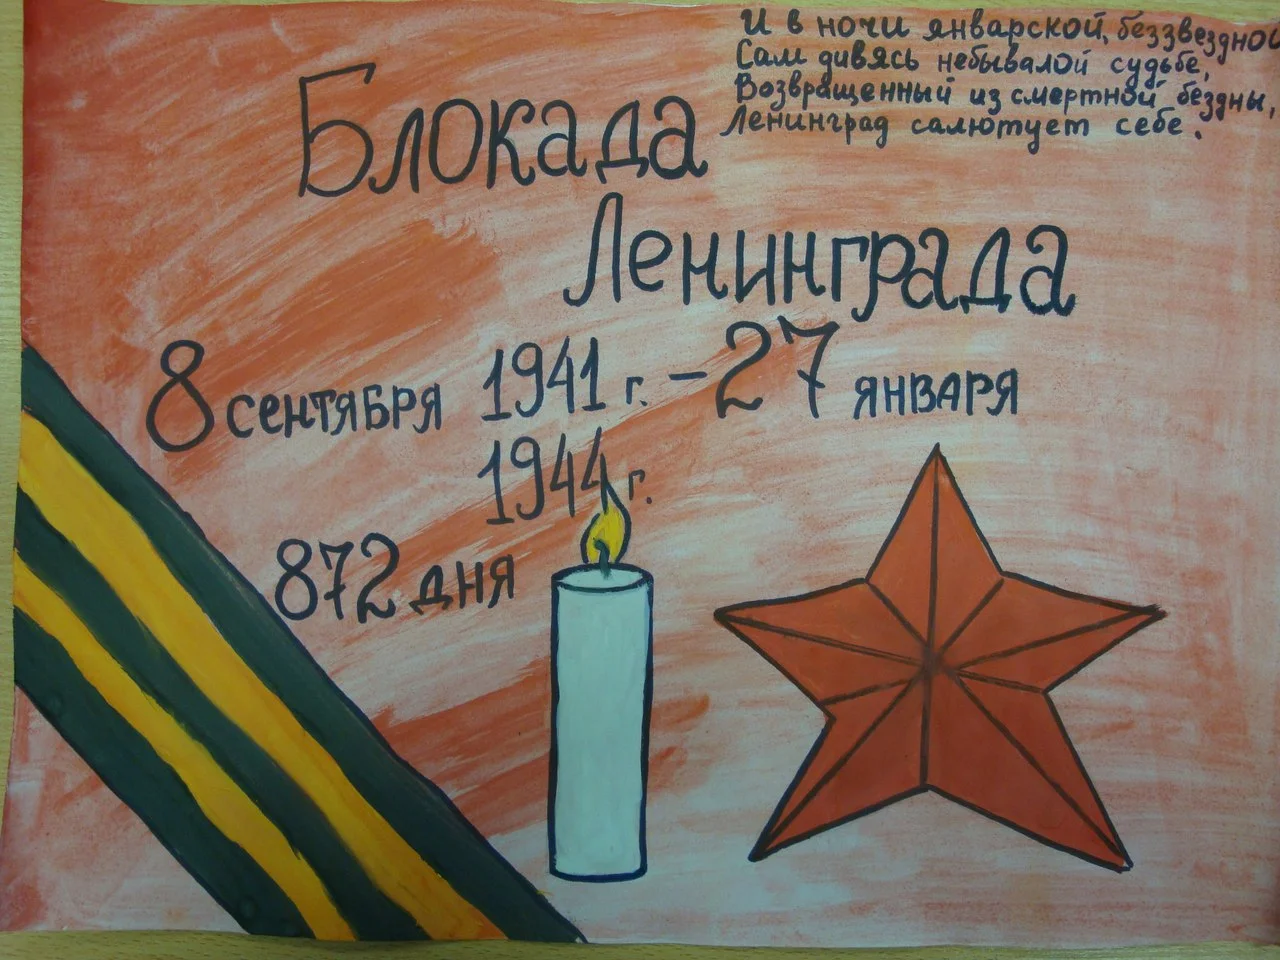 И в ночи январской, беззвездной
Сам дивясь небывалой судьбе,
Возвращенный из смертной бездны,
Ленинград салютует себе.
Блокада
Ленинграда
8 сентября 1941 г. - 27 января
1944 г.
872 дня